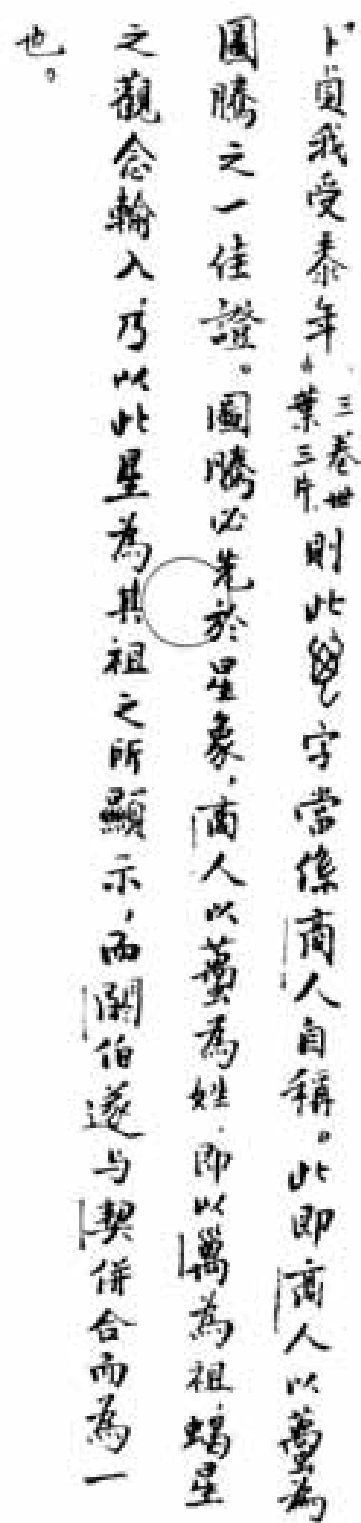 卜貞我受泰年（三卷卅葉三片）則此字當係商人自稱。此即商人以蠆為
圖騰之一佳證。圖騰必先於星象，商人以蠆為姓，即以萬為祖，蝎星
之觀念輸入，乃以此星為其祖之所顯示，而閼伯遂与契併合而為一
也。